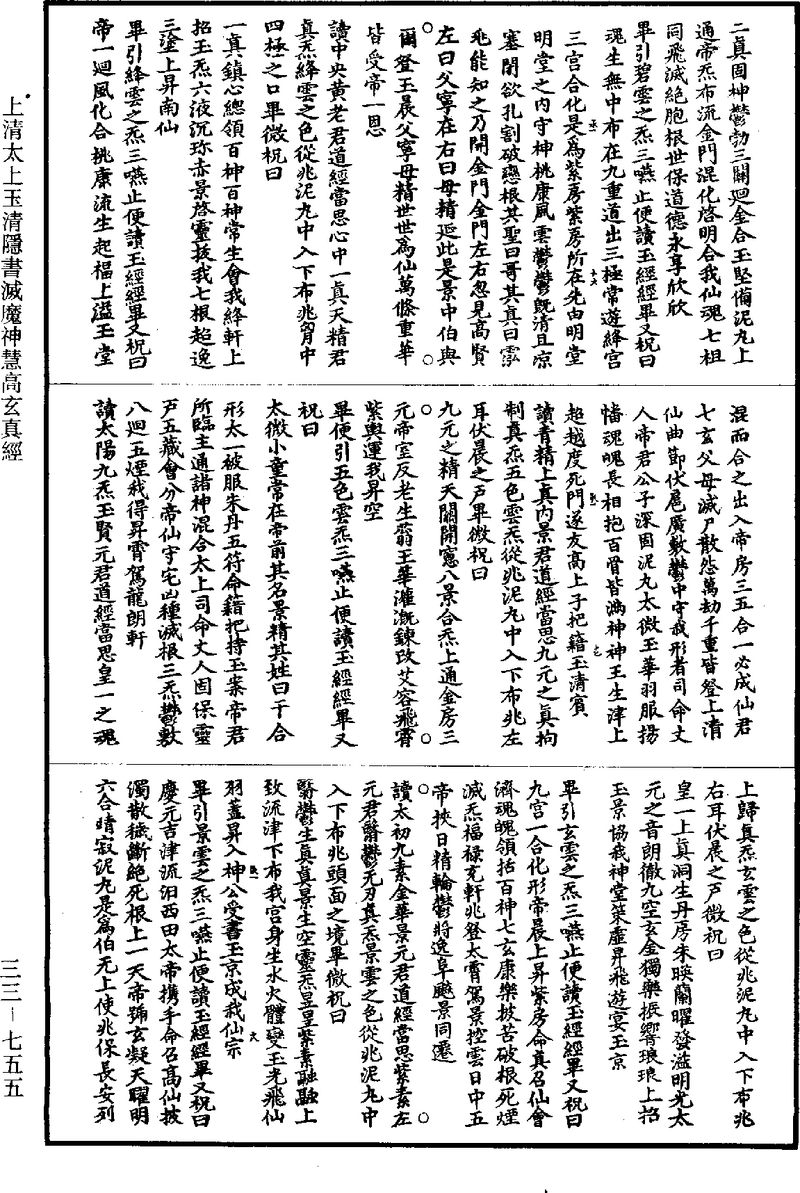 二真固神鬱勃三關迴金合玉堅備泥丸上
通帝炁布流金門混化啓明合我仙魂七祖
同飛滅絕胞根世保道德永享欣欣
畢引碧雲之炁三嚥止便讀玉經經畢又祝曰
魂生無中布在九重道出三極常遊絳宮
三宮合化是為紫房紫房所在先由明堂
明堂之内守神桃康風雲鬱鬱既清且凉
塞閉欲孔割破戀根其聖曰哥其真曰
兆能知之乃開金門金門左右忽見高賢
左曰父寧在右曰母精延此是景中伯與
爾登玉晨父寧母精世世為仙萬條重華
皆受帝一恩
讀中央黄老君道經當思心中一真天精君
真炁絳雲之色從兆泥丸中入下布兆胷中
四極之口畢微祝曰
一真鎮心總領百神百神常生會我絳軒上
招玉炁六液沉珍赤景啓靈拔我七根超逸
三塗上昇南仙
畢引絳雲之炁三嚥止便讀玉經經畢又祝曰
帝一迴風化合桃康流生起福上溢玉堂
混而合之出入帝房三五合一必成仙君
七玄父母滅尸散怨萬劫千重皆登上清
仙曲節伏晨廣敷鬱中守我形者司命丈
人帝君公子深固泥丸太微玉華羽服揚
幡魂魄長相抱百骨皆滿神神王生津上
超越度死門遂友高上子把籍玉清賓
讀青精上真内景君道經當思九元之真拘
制真炁五色雲炁從兆泥丸中入下布兆左
耳伏晨之戶畢微祝曰
九元之精天關開窻八景合炁上通金房三
元帝室反老生蒻玉華灌溉鍊改艾容飛霄
紫輿運我昇空
畢便引五色雲炁三嚥止便讀玉經經畢又
祝曰
太微小童常在帝前其名景精其姓曰干合
形太一被服朱丹五符命籍把持玉案帝君
所臨主通諸神混合太上司命丈人固保靈
戶五藏會分帝仙守宅凶種滅根三炁鬱敷
八迴五煙我得昇霄駕龍朗軒
讀太陽九炁玉賢元君道經當思皇一之魂
上歸真炁玄雲之色從兆泥丸中入下布兆
右耳伏晨之戶微祝曰
皇一上真洞生丹房朱暎蘭曜發溢明光太
元之音朗徹九空玄金獨樂振響琅琅上招
玉景協我神堂策虛昇飛遊宴玉京
畢引玄雲之炁三嚥止便讀玉經經畢又祝曰
九宮一合化形帝晨上昇紫房命真召仙會
濟魂魄領括百神七玄康樂披苦破根死煙
滅炁福祿充軒兆登太霄駕景控雲日中五
帝挾日精輪鬱將逸阜飈景同遷
讀太初九素金華景元君道經當思紫素左
元君翳鬱无刃真炁景雲之色從兆泥丸中
入下布兆頭面之境畢微祝曰
翳鬱生真真景生空靈炁昱昱紫素融融上
致流津下布我宮身生水火體變玉光飛仙
羽蓋昇入神公受書玉京成我仙宗
畢引景雲之炁三嚥止便讀玉經經畢又祝曰
慶元吉津流汨西田太帝攜手命召高仙披
濁散穢斷絕死根上一天帝號玄凝天曜明
六合晴寂泥丸是為伯无上使兆保長安列
上清太上玉清隱書滅魔神慧高玄真經
三三－七五五